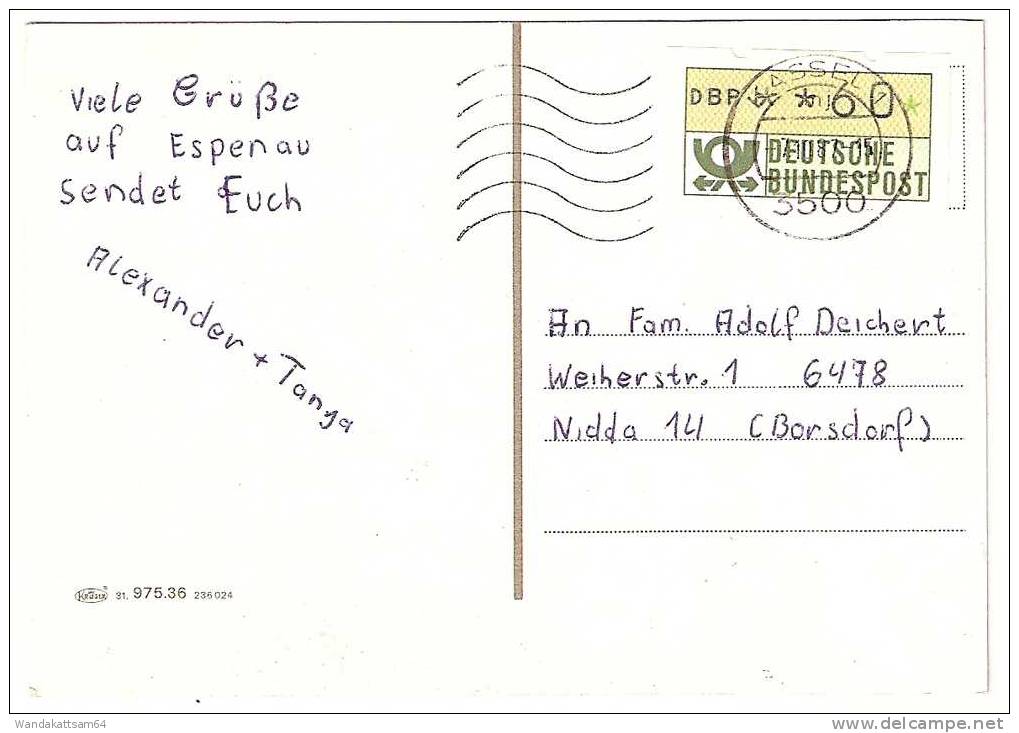 Viele Grüße
auf Espenau
sendet Euch
Alexander + Tanya
Krüger 31. 975.36 236024
KASSEL
DBP * * 60 *
DEUTSCHE
BUNDESPOST
3500
An Fam. Adolf Deichert
Weiherstr. 1 6478
Nidda 14 (Borsdorf)
Wandakattsam64
www.delcampe.net